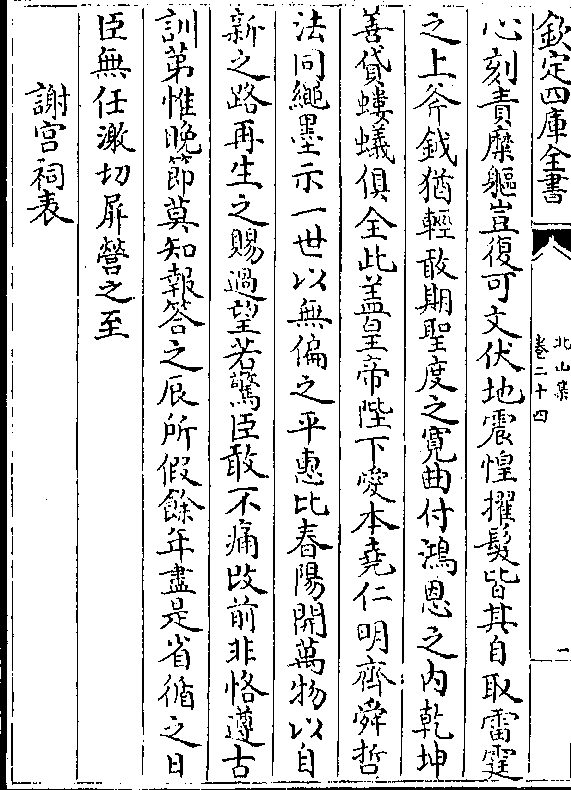 欽定四庫全書
北山集
卷二十四
一
心刻責糜軀豈復可文伏地震惶擢髮皆其自取雷霆
之上斧鉞猶輕敢期聖度之寛曲付鴻恩之内乾坤
善貸螻蟻俱全此蓋皇帝陛下愛本堯仁明齊舜哲
法同繩墨示一世以無偏之平恵比春陽開萬物以自
新之路再生之賜過望若驚臣敢不痛改前非恪遵古
訓第惟晚節莫知報答之辰所假餘年盡是省循之日
臣無任激切屏營之至
謝宫祠表